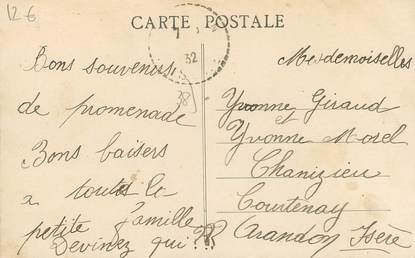 12-6
CARTE POSTALE
32
38
Bons souvenirs
de promenade
Bons baisers
a toute la
petite famille
Devinez qui ???
Mesdemoiselles
Yvonne Giraud
et
Yvonne Morel
Chanizieu
Courtenay
Arandon Isère